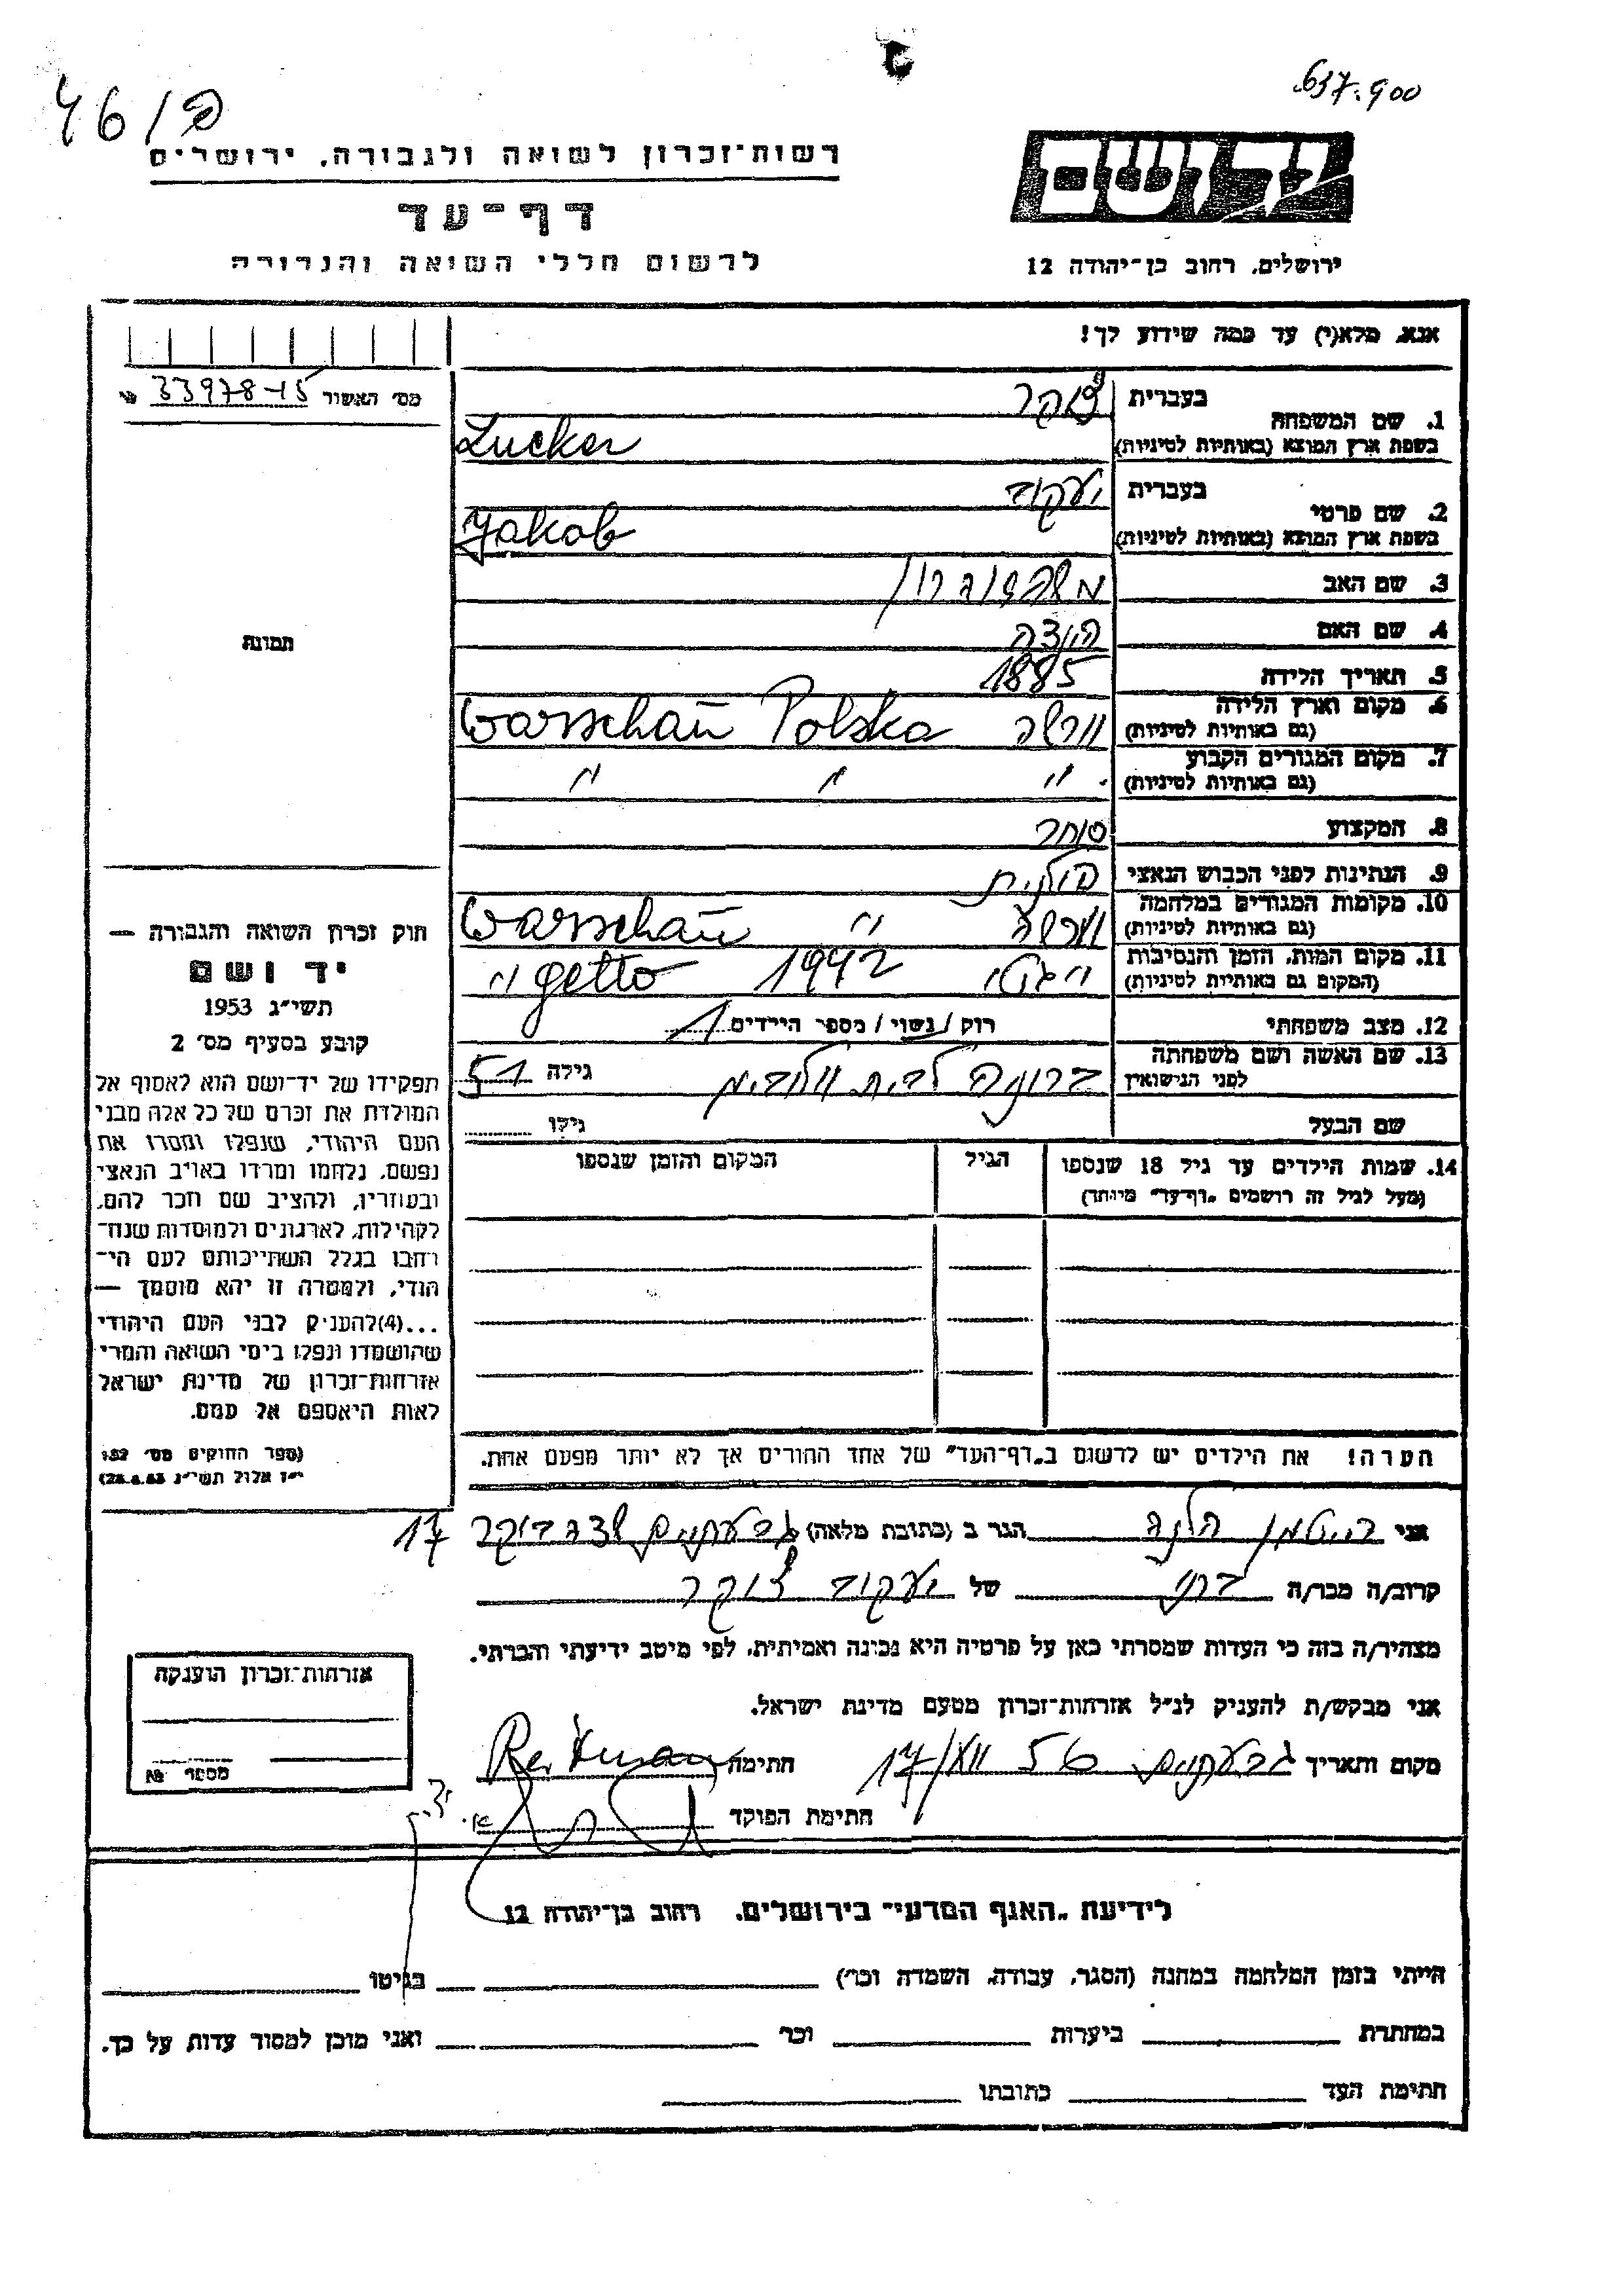 637.900
46/פ
רשות־זכרון לשואה ולגבורה, ירושלים
דף־עד
לרשום חללי השואה והגבורה
יד ושם
ירושלים, רחוב בן־יהודה 12
אנא, מלא(י) עד כמה שידוע לך!
מס׳ האשור 33978-15
1. שם המשפחה בעברית צוקר
בשפת ארץ המוצא (באותיות לטיניות) Zucker
2. שם פרטי בעברית יעקוב
בשפת ארץ המוצא (באותיות לטיניות) Jakob
3. שם האב משה אהרון
4. שם האם
5. תאריך הלידה 1885
6. מקום וארץ הלידה (גם באותיות לטיניות) וורשה Polska Warschaŭ
7. מקום המגורים הקבוע (גם באותיות לטיניות) " " "
8. המקצוע סוחר
9. הנתינות לפני הכבוש הנאצי פולנית
10. מקומות המגורים במלחמה (גם באותיות לטיניות) וורשה " Warschaŭ
11. מקום המות, הזמן והנסיבות (המקום גם באותיות לטיניות) " גטו 1942 getto "
12. מצב משפחתי רוק / נשוי / מספר הילדים 1
13. שם האשה ושם משפחתה לפני הנישואין ברוניה לבית גילה 51
שם הבעל גילו
14. שמות הילדים עד גיל 18 שנספו הגיל המקום והזמן שנספו
(מעל לגיל זה רושמים „דף־עד״ מיוחד)
הערה! את הילדים יש לרשום ב„דף־העד״ של אחד ההורים אך לא יותר מפעם אחת.
תמונה
חוק זכרון השואה והגבורה —
יד ושם
תשי״ג 1953
קובע בסעיף מס׳ 2
תפקידו של יד־ושם הוא לאסוף אל
המולדת את זכרם של כל אלה מבני
העם היהודי, שנפלו ומסרו את
נפשם, נלחמו ומרדו באויב הנאצי
ובעוזריו, ולהציב שם וזכר להם,
לקהילות, לארגונים ולמוסדות שנח־
רבו בגלל השתייכותם לעם הי־
הודי, ולמטרה זו יהא מוסמך —
...(4)להעניק לבני העם היהודי
שהושמדו ונפלו בימי השואה והמרי
אזרחות־זכרון של מדינת ישראל
לאות היאספם אל עמם.
(ספר החוקים מס׳ 132
י״ז אלול תשי״ג 28.8.53)
אני רייטמן הלנה הגר ב (כתובת מלאה) גבעתיים שדה בוקר 17
קרוב/ה מכר/ה בתי של יעקוב צוקר
מצהיר/ה בזה כי העדות שמסרתי כאן על פרטיה היא נכונה ואמיתית, לפי מיטב ידיעתי והכרתי.
אני מבקש/ת להעניק לנ״ל אזרחות־זכרון מטעם מדינת ישראל.
מקום ותאריך גבעתיים 17/XII 56 חתימה Reitman
חתימת הפוקד
אזרחות־זכרון הוענקה
מספר №
לידיעת „האגף המדעי״ בירושלים, רחוב בן־יהודה 12
הייתי בזמן המלחמה במחנה (הסגר, עבודה, השמדה וכר׳) בגיטו
במחתרת ביערות וכר ואני מוכן למסור עדות על כך.
חתימת העד כתובתו